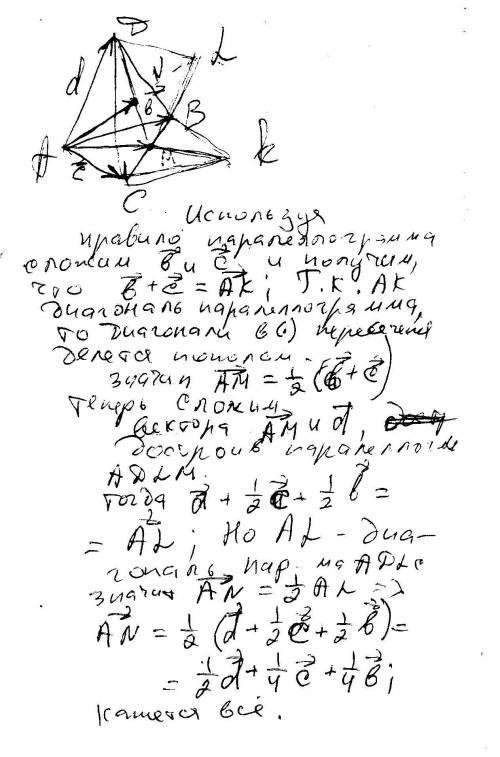 D
L
d
N
b⃗
B
A
M
K
c⃗
C
Используя
правило паралеллограмма
сложим b⃗ и c⃗ и получим,
что b⃗ + c⃗ = AK⃗; Т.К. AK
диагональ паралеллограмма,
то диагонали в (·) пересечения
делятся пополам.
значит AM⃗ = 1/2 (b⃗ + c⃗)
теперь сложим
вектора AM⃗ и d⃗,
достроив паралеллогм
ADLM.
тогда d⃗ + 1/2 c⃗ + 1/2 b⃗ =
= AL⃗; Но AL - диа-
гональ пар-ма ADLC
значит AN⃗ = 1/2 AL =>
AN⃗ = 1/2 (d⃗ + 1/2 c⃗ + 1/2 b⃗) =
= 1/2 d⃗ + 1/4 c⃗ + 1/4 b⃗;
кажется всё.